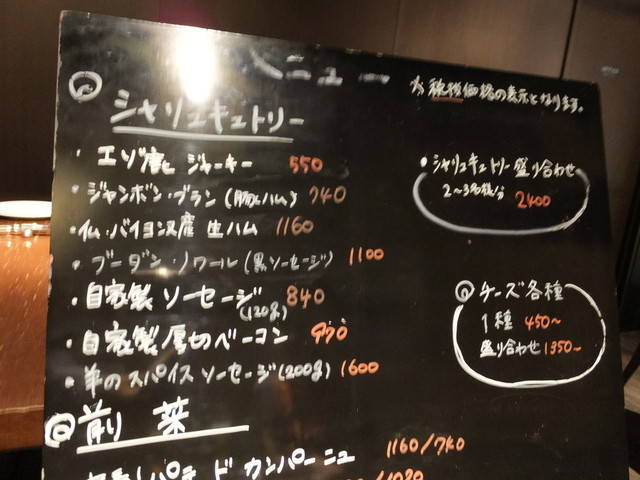 メニュー
※税抜価格の表示となります。
シャリュキュトリー
・エゾ鹿 ジャーキー 550
・ジャンボン・ブラン(豚ももハム) 740
・仏・バイヨンヌ産 生ハム 1160
・ブーダン・ノワール(黒ソーセージ) 1100
・自家製 ソーセージ(120g) 840
・自家製 厚切ベーコン 970
・羊のスパイスソーセージ(200g) 1600
・シャリュキュトリー盛り合わせ
2〜3名様分 2400
◎チーズ各種
1種 450〜
盛り合わせ 1350〜
◎前菜
パテ ド カンパーニュ 1160/740